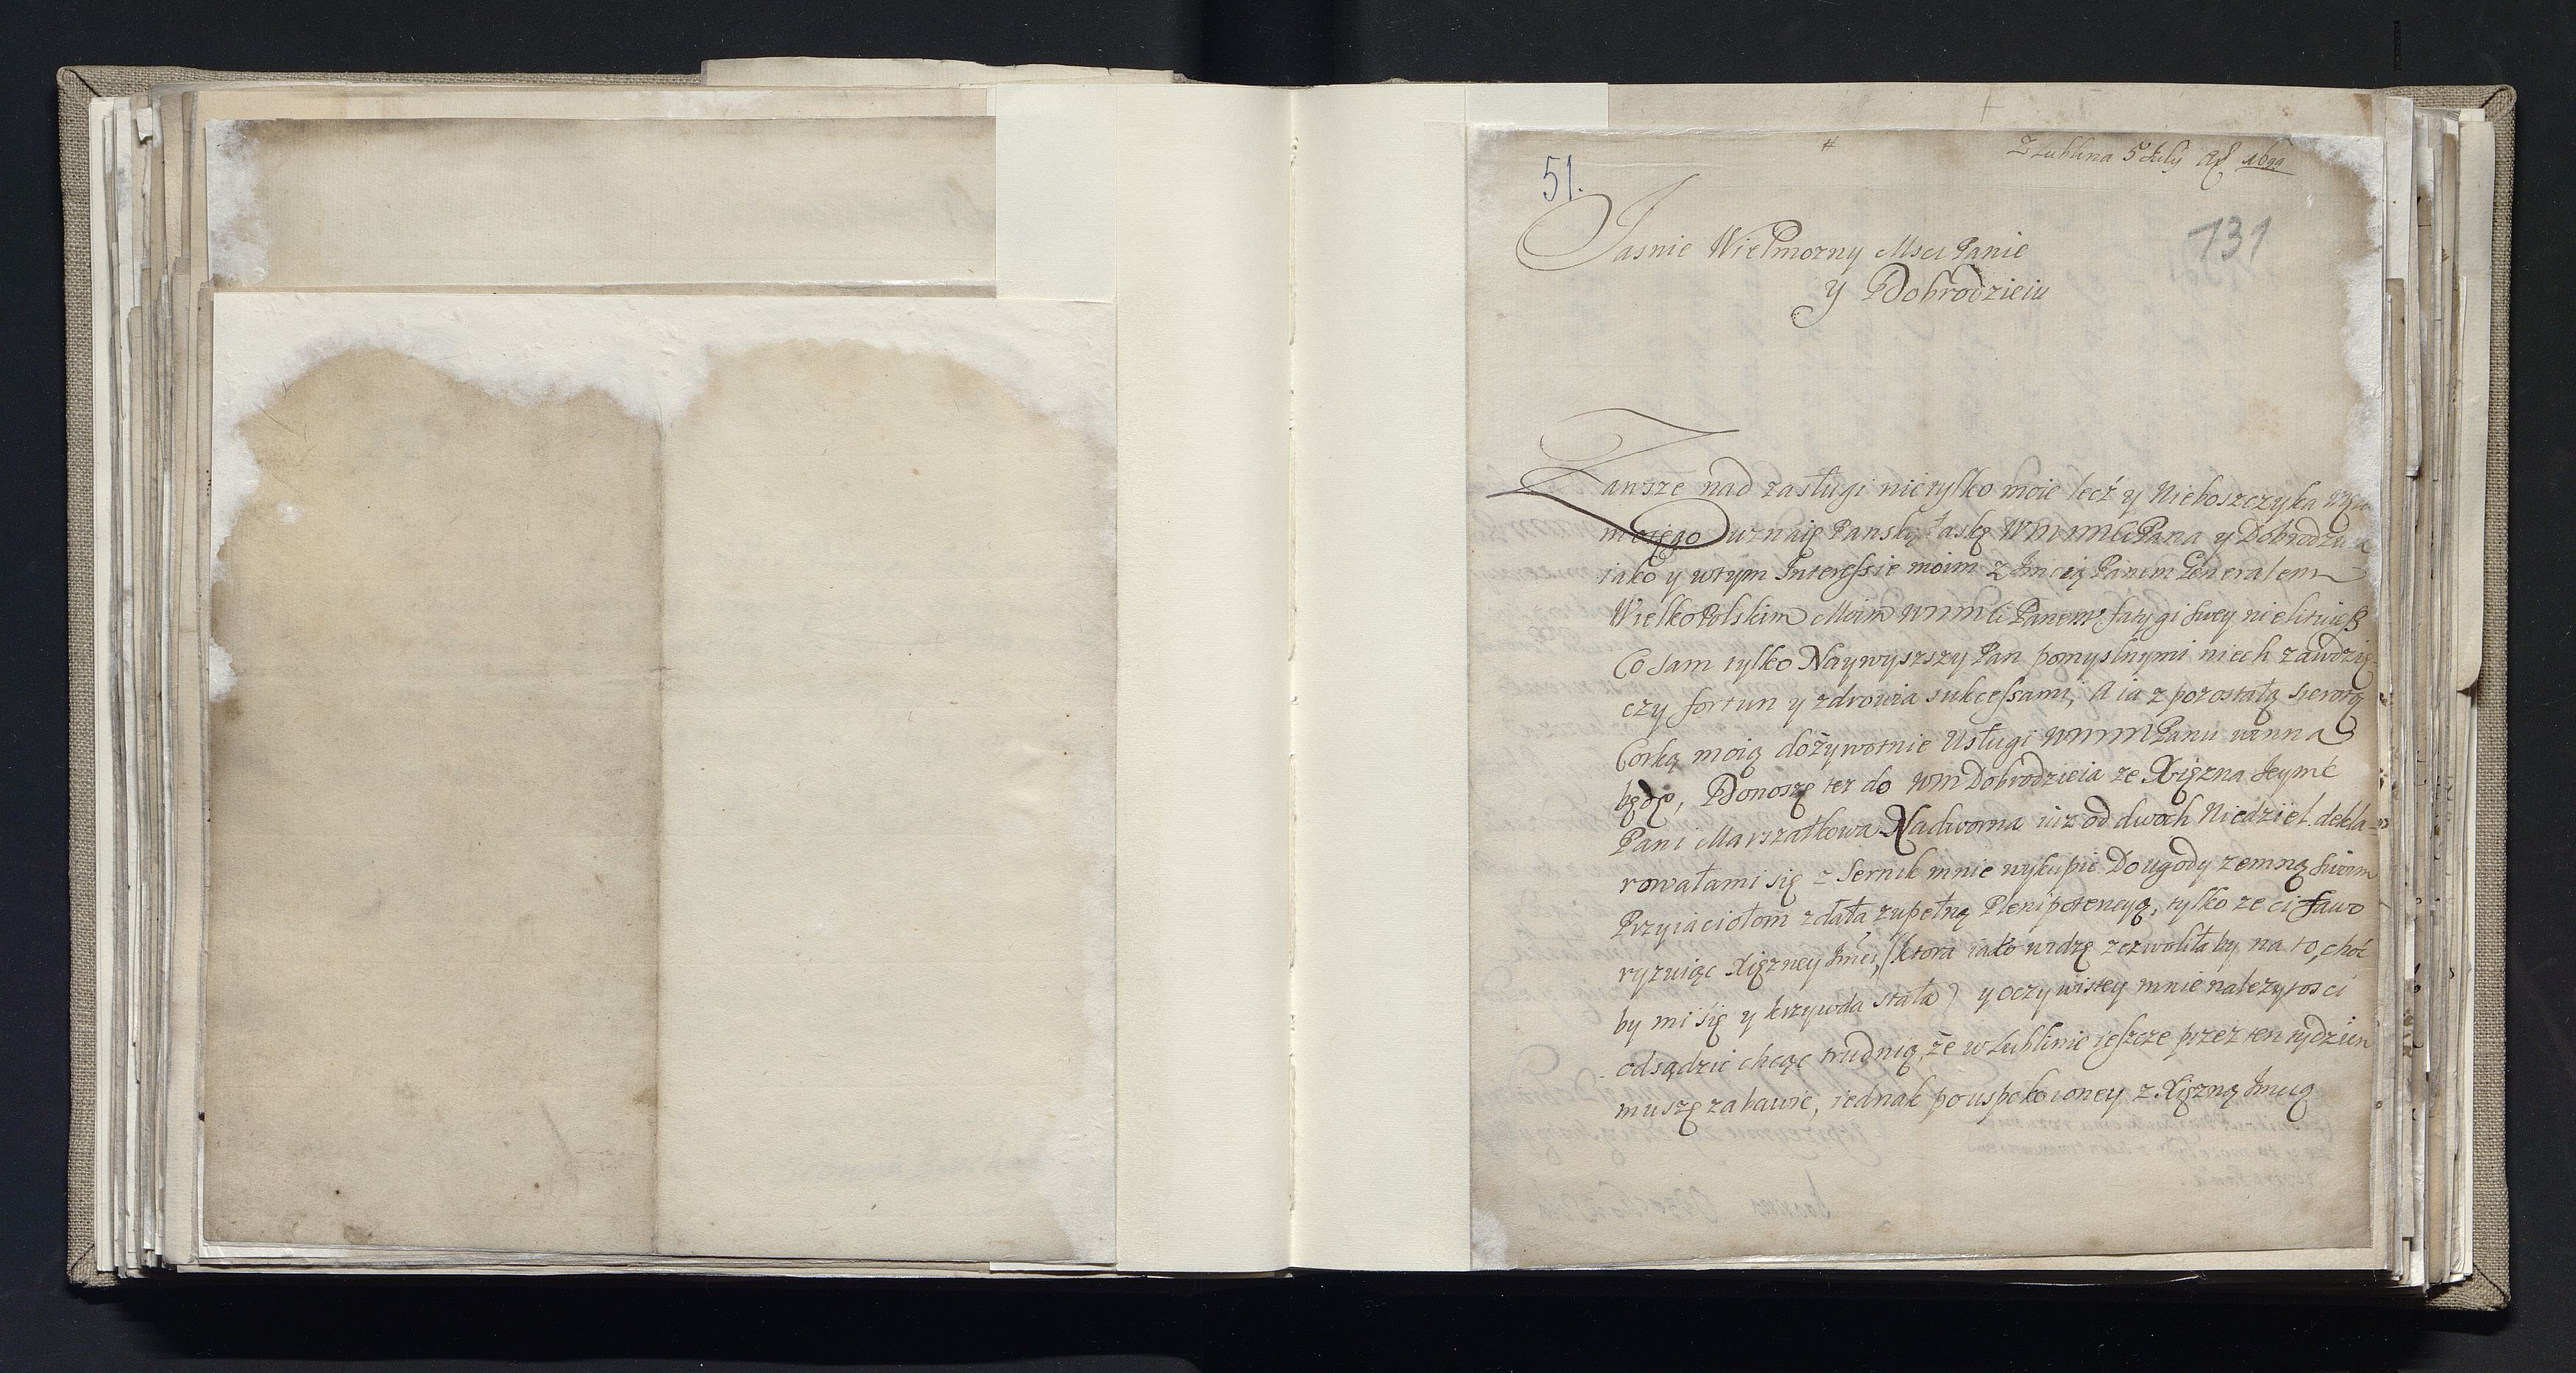 Z Lublina 5 July
51.
131
Jasnie Wielmozny Msci Panie
y Dobrodzieiu
Zawsze nad zasługi nietylko moie lecż y Nieboszczyka
moięgo uznaię Panską łaskę WMMMci Pana y Dobrodzieia
iako y wtym Interessie moim z Jmcią Panem Generalem
WielkoPolskim Moim WMMci Panem fatygi swey nielituięß
Co sam tylko Naywyszszy Pan pomyslnymi niech zawdzię
czy fortun y zdrowia sukcessami, A ia z pozostałą sierotą
Corką moią dożywotnie Usługi WMMMPanu winna
będę, Donoszę tez do WM Dobrodzieia ze Xięzna Jeymć
Pani Marszałkowa Nadworna iuz od dwoch Niedziel dekla-
rowałami się z Sernik mnie wykupić Do ugody zemną swoim
Przyiaciołom zdała zupełną Plenipotencyą, tylko ze ci fawo
ryzuiąc Xięzney Jmći, (ktora iako widzę zezwoliłaby na to, choć
by mi się y krzywda stała) y oczywistey mnie nalezytosci
odsądzić chcąc trudnią, że w Lublinie ieszcze przez ten tydzien
muszę zabawić, iednak pouspokoioney z Xięzną Jmcią